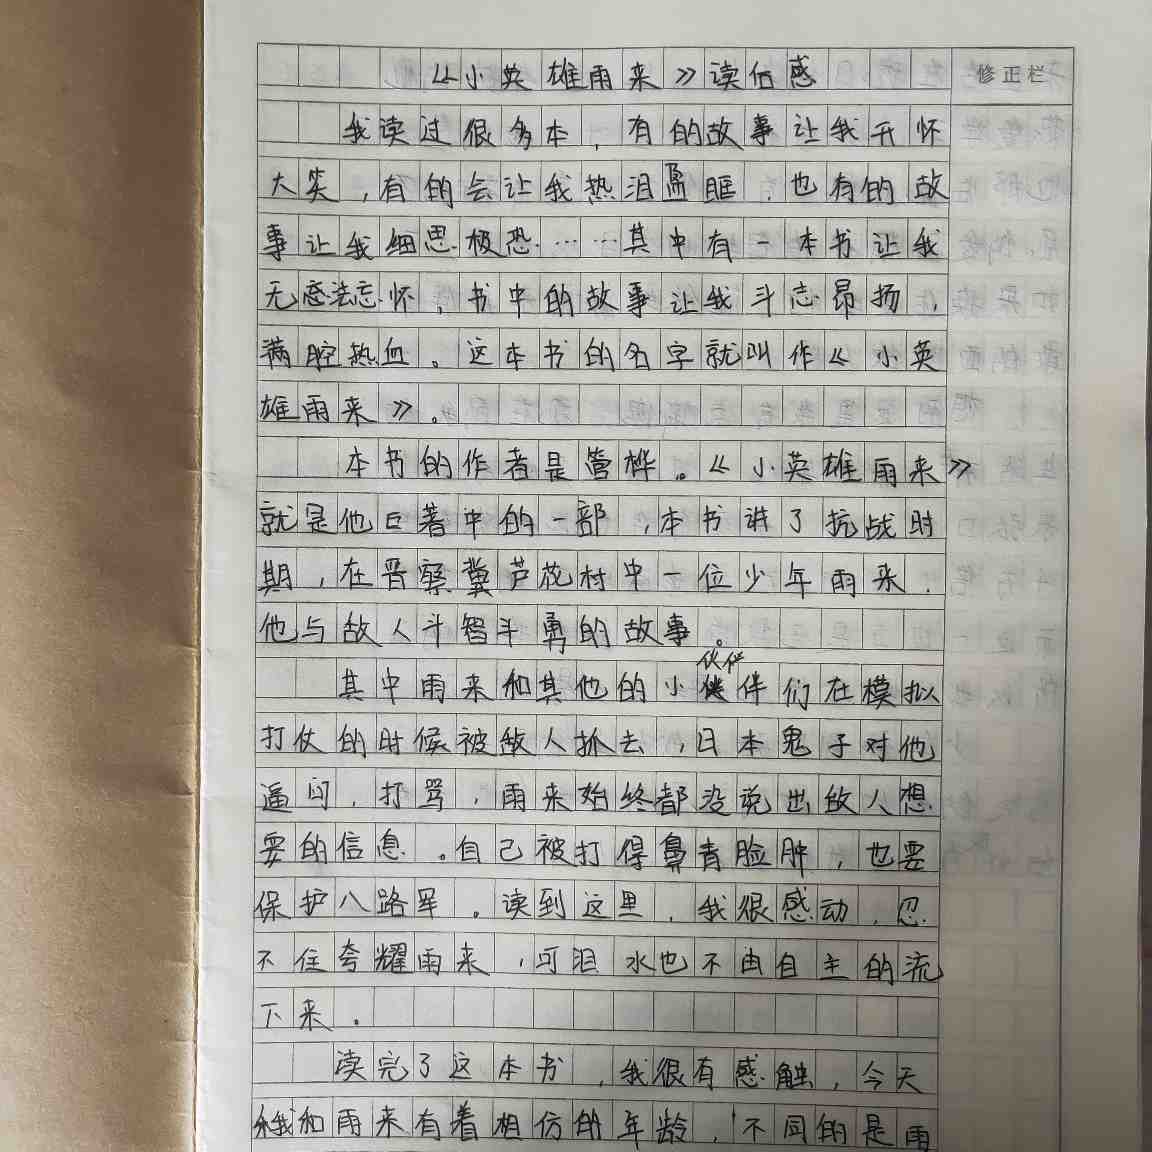 《小英雄雨来》读后感
修正栏
我读过很多本，有的故事让我开怀
大笑，有的会让我热泪盈眶，也有的故
事让我细思极恐……其中有一本书让我
无法忘怀，书中的故事让我斗志昂扬，
满腔热血。这本书的名字就叫作《小英
雄雨来》。
本书的作者是管桦。《小英雄雨来》
就是他巨著中的一部，本书讲了抗战时
期，在晋察冀芦花村中一位少年雨来，
他与敌人斗智斗勇的故事。
其中雨来和其他的小伙伴们在模拟
打仗的时候被敌人抓去，日本鬼子对他
逼问，打骂，雨来始终都没说出敌人想
要的信息。自己被打得鼻青脸肿，也要
保护八路军。读到这里，我很感动，忍
不住夸耀雨来，可泪水也不由自主的流
下来。
读完了这本书，我很有感触，今天
我和雨来有着相仿的年龄，不同的是雨